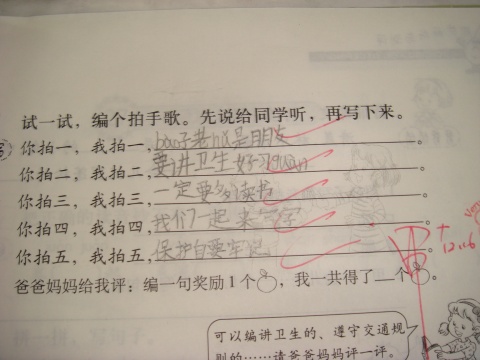 试一试，编个拍手歌。先说给同学听，再写下来。
你拍一，我拍一，bào子老hǔ是朋友。
你拍二，我拍二，要讲卫生好习guàn。
你拍三，我拍三，一定要多读书。
你拍四，我拍四，我们一起来写字。
你拍五，我拍五，保护白要牢记。
爸爸妈妈给我评：编一句奖励1个，我一共得了__个。
可以编讲卫生的、遵守交通规
则的……请爸爸妈妈评一评。
12.16